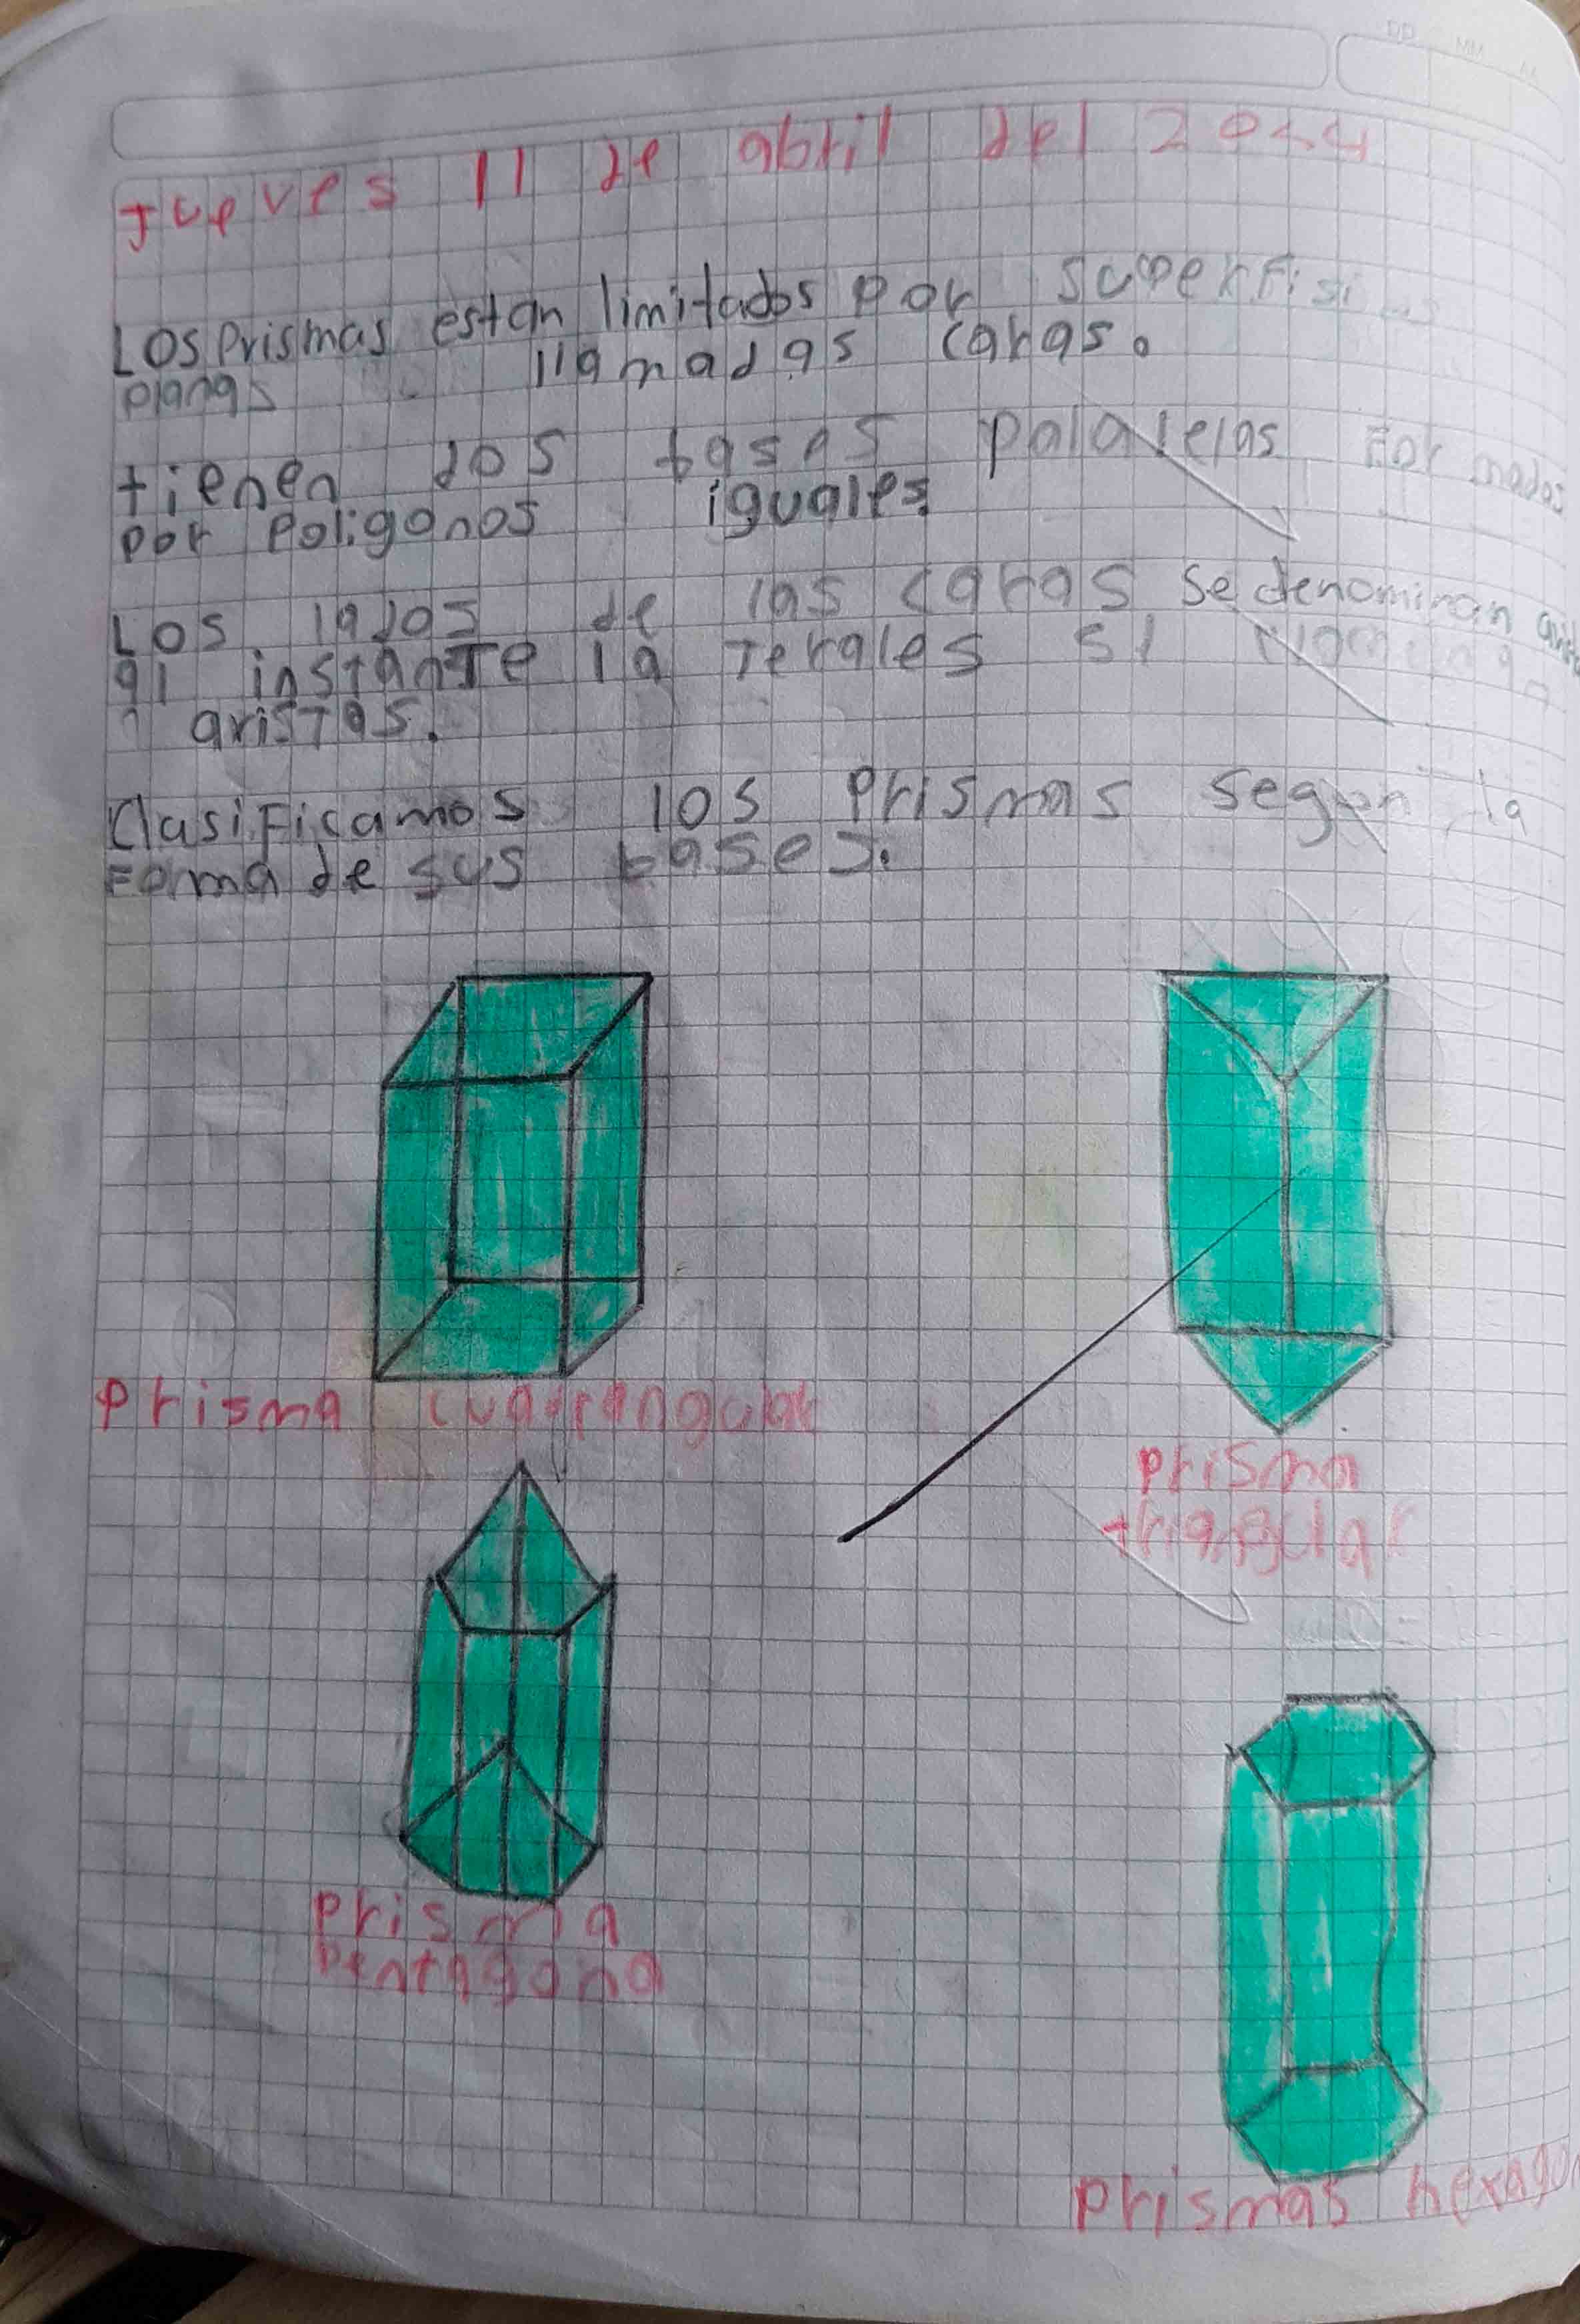 Jueves 11 de abril del 2024
Los prismas estan limitados por superfisi
planas llamadas caras.
tienen dos bases palalelas Formados
por Poligonos iguales.
Los lados de las caras se denominan
al instante la Terales si
aristas.
Clasificamos los Prismas segun la
Forma de sus bases.
Prisma cuadrangular
prisma
triangular
prisma
pentagona
prismas hexagon